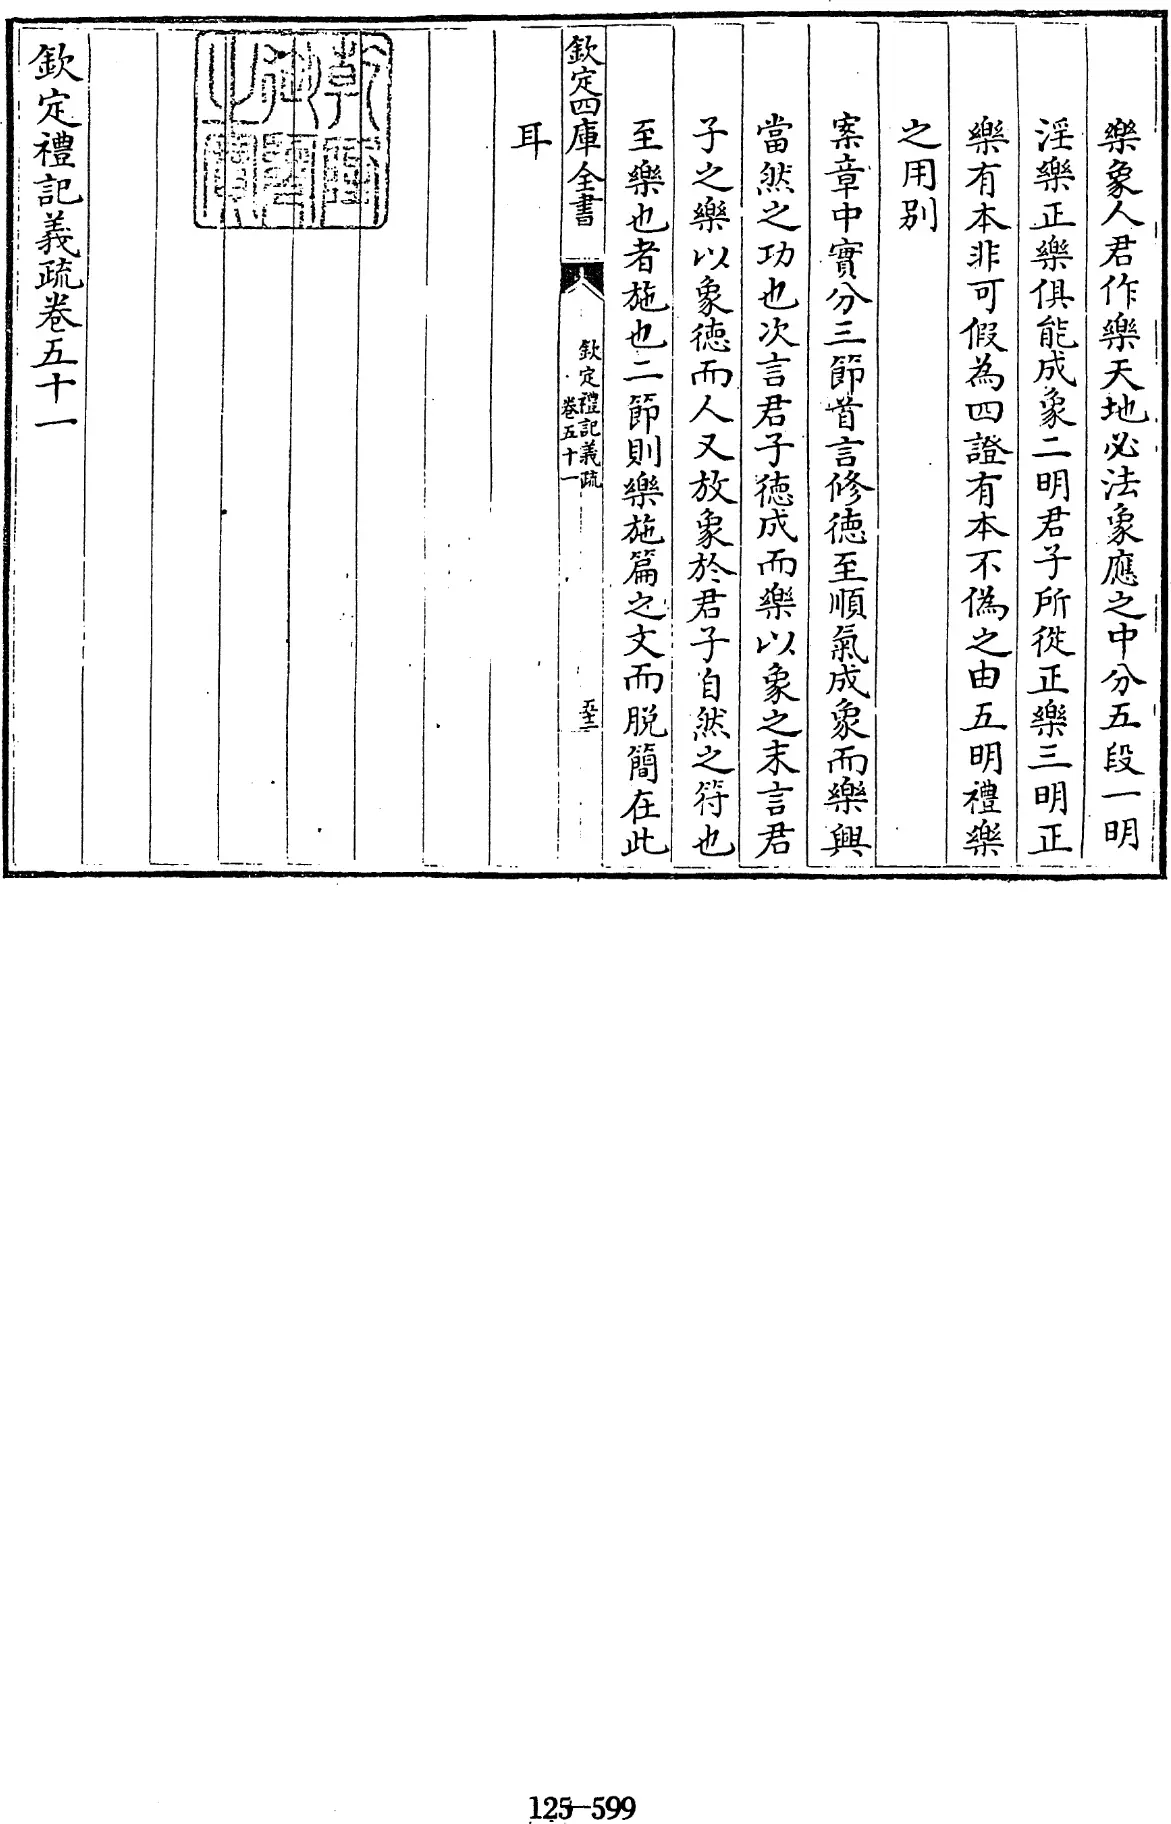 樂象人君作樂天地必法象應之中分五段一明
淫樂正樂俱能成象二明君子所從正樂三明正
樂有本非可假為四證有本不偽之由五明禮樂
之用别
案章中實分三節首言修徳至順氣成象而樂興
當然之功也次言君子徳成而樂以象之末言君
子之樂以象徳而人又放象於君子自然之符也
至樂也者施也二節則樂施篇之文而脱簡在此
欽定四庫全書
欽定禮記義疏
卷五十一
耳
欽定禮記義疏卷五十一
125-599